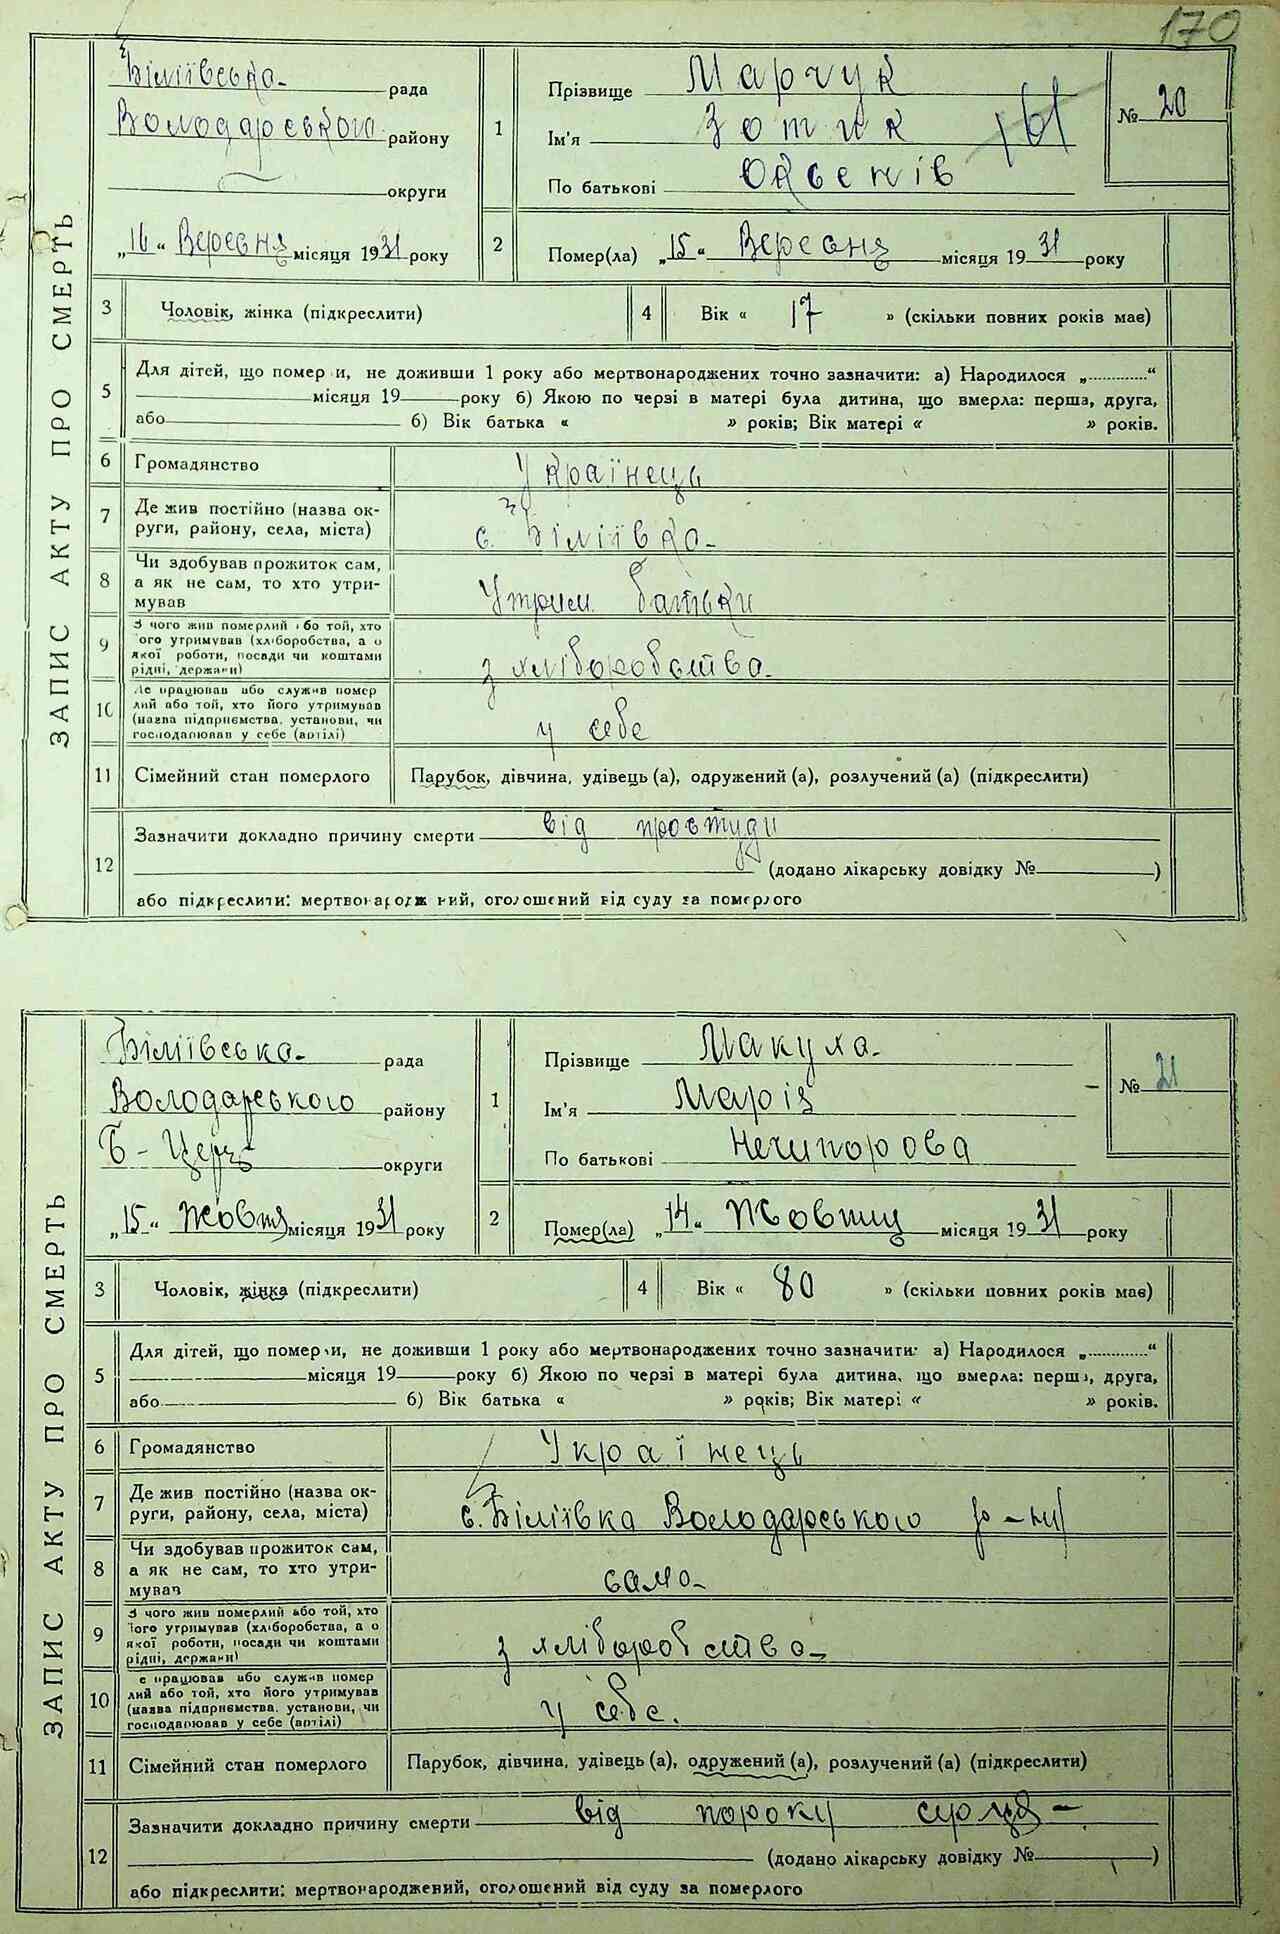 170
ЗАПИС АКТУ ПРО СМЕРТЬ
Біліївська рада
Володарського району
округи
„16“ Вересня місяця 1931 року
1
Прізвище Марчук
Ім'я Зотик
По батькові Овсенів
№ 20
2
Помер(ла) „15“ Вересня місяця 1931 року
3 Чоловік, жінка (підкреслити)
4 Вік « 17 » (скільки повних років має)
5 Для дітей, що помер и, не доживши 1 року або мертвонароджених точно зазначити: а) Народилося „............“
місяця 19 року б) Якою по черзі в матері була дитина, що вмерла: перша, друга,
або б) Вік батька « » років; Вік матері « » років.
6 Громадянство Українець
7 Де жив постійно (назва ок-
руги, району, села, міста) с. Біліївка
8 Чи здобував прожиток сам,
а як не сам, то хто утри-
мував Утрим. батьки
9 З чого жив померлий або той, хто
ого утримував (хліборобства, а о
якої роботи, посади чи коштами
рідні, держави) з хліборобства
10 Де працював або служив помер
лий або той, хто його утримував
(назва підприємства, установи, чи
господарював у себе (артілі) у себе
11 Сімейний стан померлого Парубок, дівчина, удівець (а), одружений (а), розлучений (а) (підкреслити)
12 Зазначити докладно причину смерти від простуди
(додано лікарську довідку № )
або підкреслити: мертвонароджений, оголошений від суду за померлого
ЗАПИС АКТУ ПРО СМЕРТЬ
Біліївська рада
Володарського району
Б-Церк округи
„15“ Жовтня місяця 1931 року
1
Прізвище Макуха
Ім'я Марія
По батькові Нечипорова
№ 21
2
Помер(ла) „14“ Жовтня місяця 1931 року
3 Чоловік, жінка (підкреслити)
4 Вік « 80 » (скільки повних років має)
5 Для дітей, що померли, не доживши 1 року або мертвонароджених точно зазначити: а) Народилося „............“
місяця 19 року б) Якою по черзі в матері була дитина, що вмерла: перша, друга,
або б) Вік батька « » років; Вік матері « » років.
6 Громадянство Українець
7 Де жив постійно (назва ок-
руги, району, села, міста) с. Біліївка Володарського р-ну
8 Чи здобував прожиток сам,
а як не сам, то хто утри-
мував сама
9 З чого жив померлий або той, хто
його утримував (хліборобства, а о
якої роботи, посади чи коштами
рідні, держави) з хліборобства
10 е працював або служив помер
лий або той, хто його утримував
(назва підприємства, установи, чи
господарював у себе (артілі) у себе.
11 Сімейний стан померлого Парубок, дівчина, удівець (а), одружений (а), розлучений (а) (підкреслити)
12 Зазначити докладно причину смерти від пороку серця
(додано лікарську довідку № )
або підкреслити: мертвонароджений, оголошений від суду за померлого